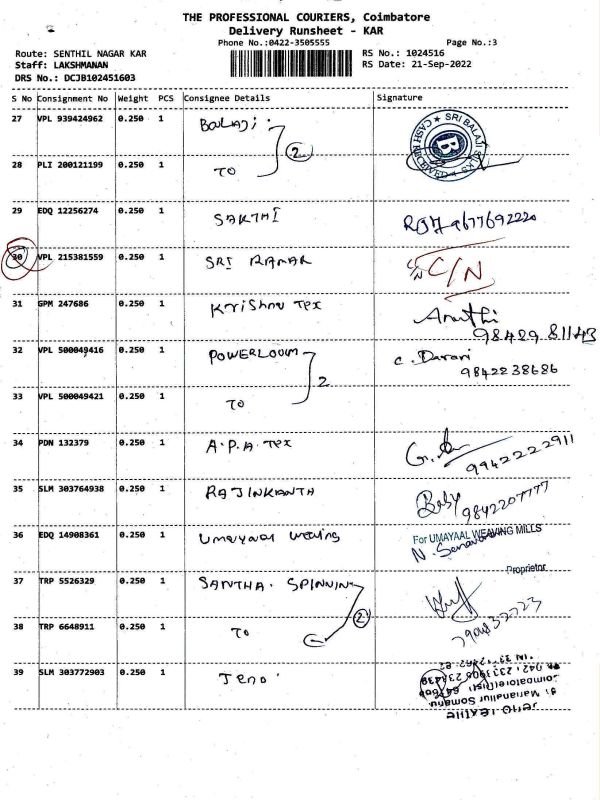 THE PROFESSIONAL COURIERS, Coimbatore
Delivery Runsheet - KAR
Phone No.:0422-3505555
Page No.:3
Route: SENTHIL NAGAR KAR
RS No.: 1024516
Staff: LAKSHMANAN
RS Date: 21-Sep-2022
DRS No.: DCJB102451603
S No Consignment No Weight PCS Consignee Details Signature
27 VPL 939424962 0.250 1 SRI BALAJI SILKS
28 PLI 200121199 0.250 1 TO 2
29 EDQ 12256274 0.250 1 SAKTHI 9677692220
30 VPL 215381559 0.250 1 SRI RAMAR C/N C/N
31 GPM 247686 0.250 1 Krishna Tex 98429 81143
32 VPL 500049416 0.250 1 POWERLOOM 9842238686
33 VPL 500049421 0.250 1 TO 2
34 PDN 132379 0.250 1 A.P.A. Tex 9942222911
35 SLM 303764938 0.250 1 RAJINKANTH Baby 9842207777
36 EDQ 14908361 0.250 1 Umayaal weaving For UMAYAAL WEAVING MILLS
Proprietor
37 TRP 5526329 0.250 1 SANTHA. SPINNING
38 TRP 6648911 0.250 1 TO 2
39 SLM 303772903 0.250 1 Jeno